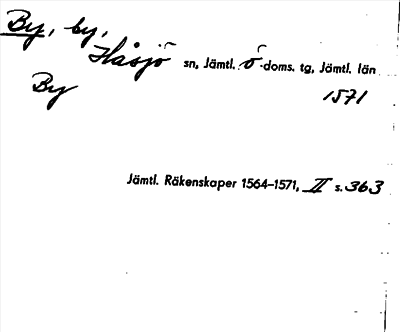 By, by,
Håsjö sn, Jämtl. ö-doms. tg, Jämtl. län
By 1571
Jämtl. Räkenskaper 1564–1571, II s. 363